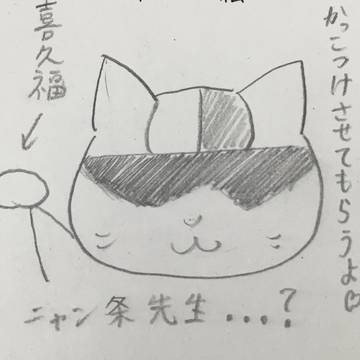 かっこつけさせてもらうよ♡
喜久福
ニャン条先生...?